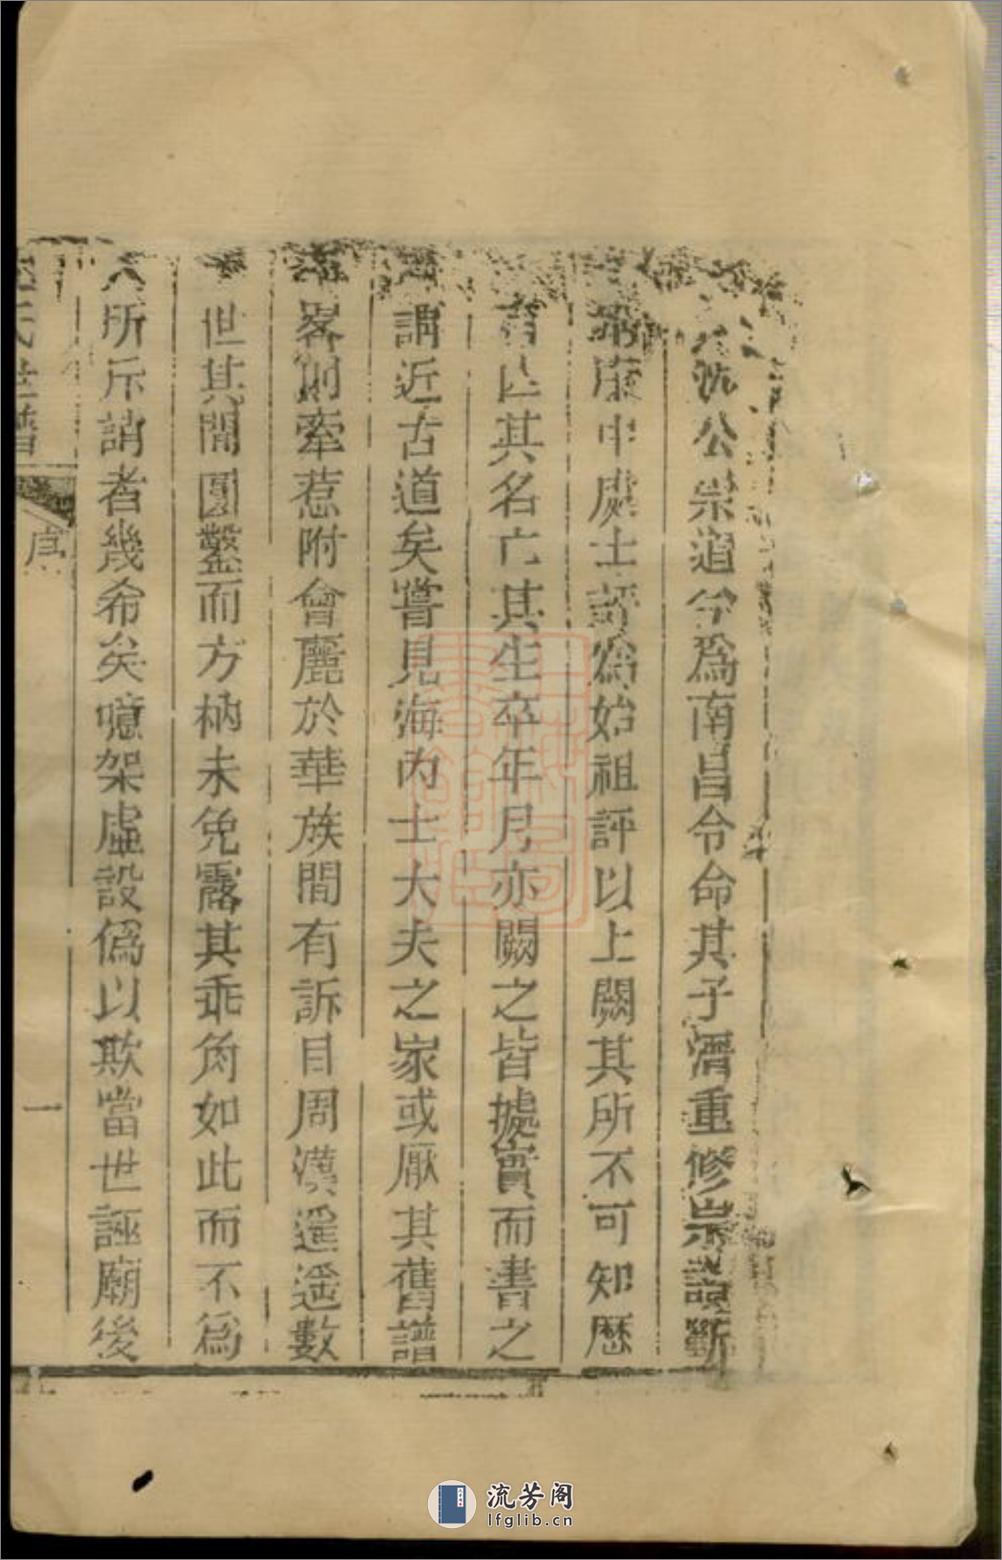 公宗道今為南昌令命其子潛重修宗譜斷
康中處士評為始祖評以上闕其所不可知歷
其名亡其生卒年月亦闕之皆據實而書之
謂近古道矣嘗見海內士大夫之家或厭其舊譜
畧則牽惹附會麗於華族間有訴目周漢遥遥數
世其間圓鑿而方枘未免露其乖角如此而不為
所斥誚者幾希矣噫架虛設偽以欺當世誣廟後
氏世譜 序 一
流芳阁
lfglib.cn